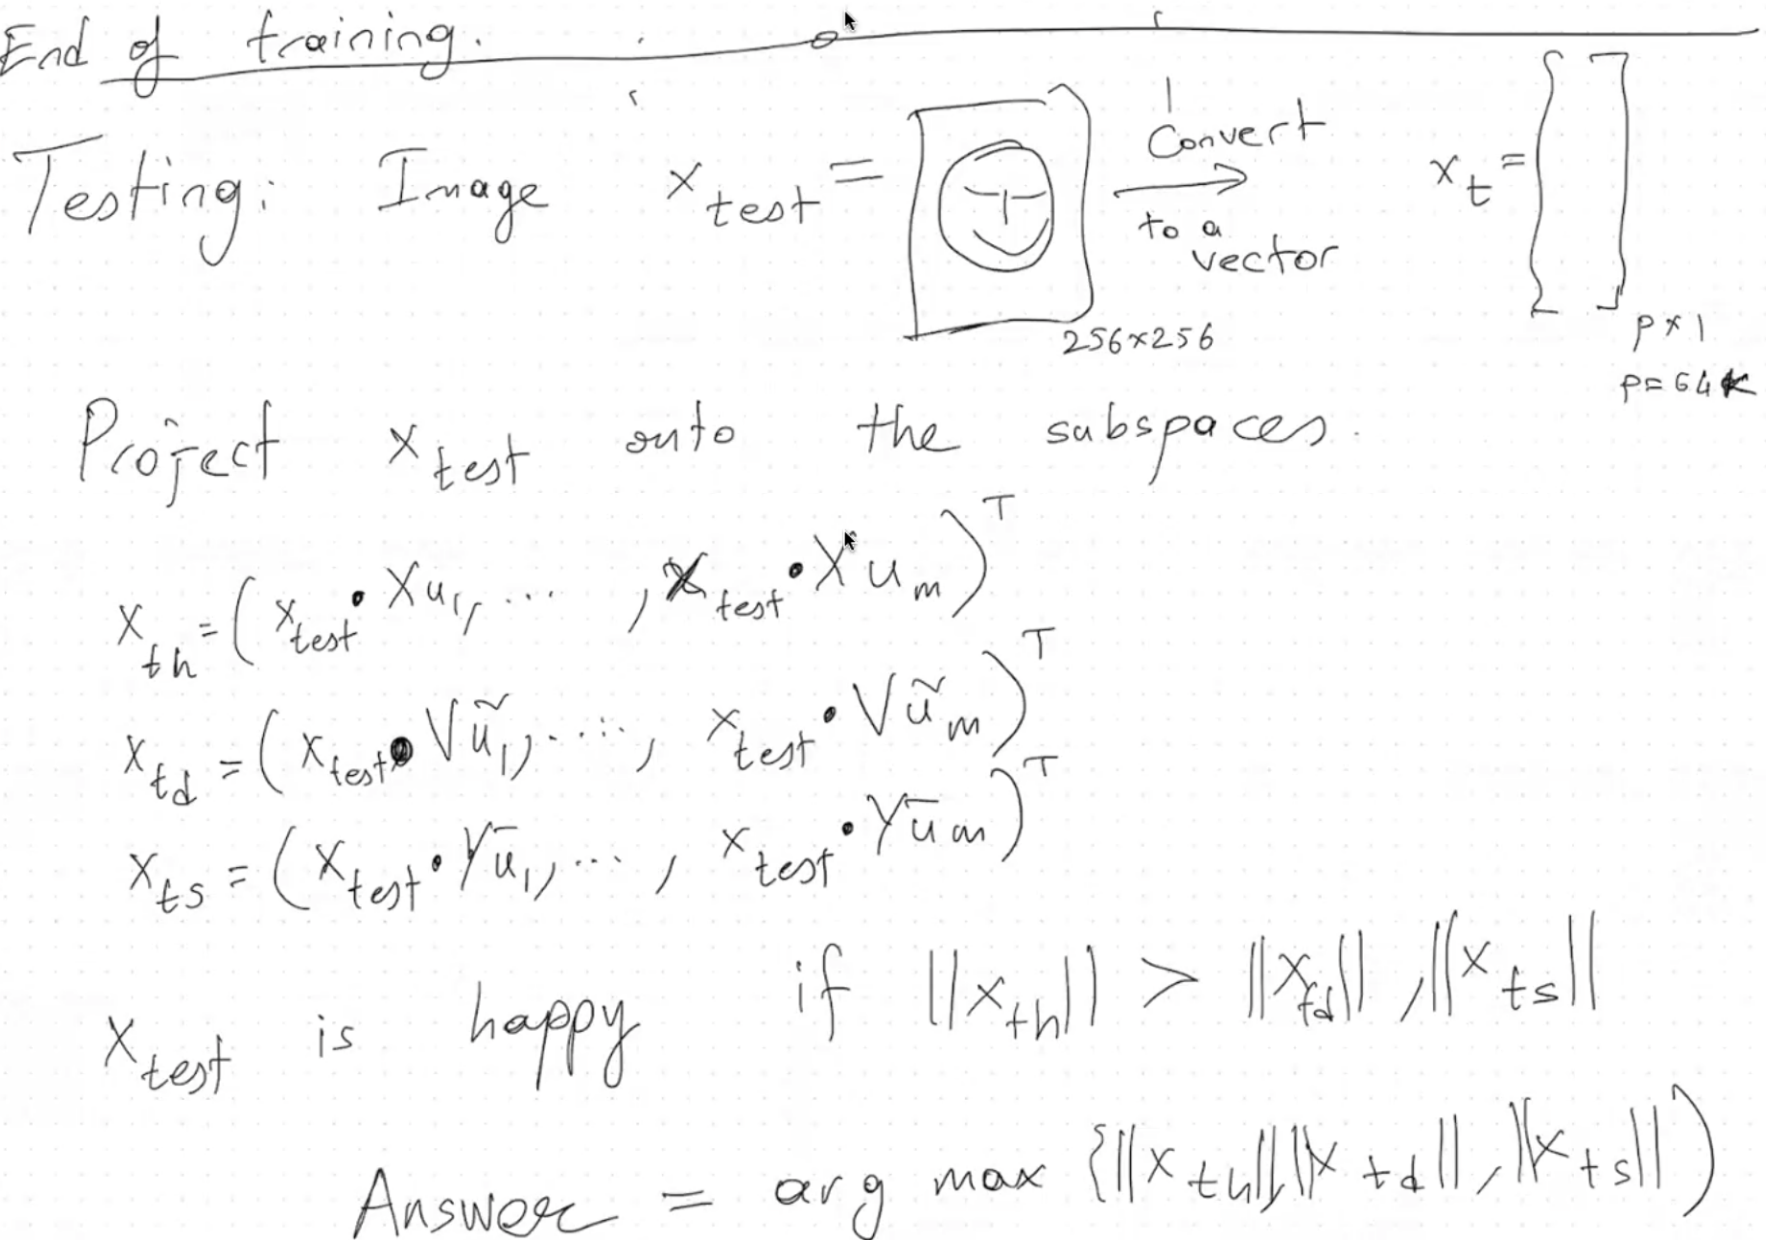 End of training.
Testing: Image x_test = Convert to a vector x_t = [ ]
256×256
p×1
p=64K
Project x_test onto the subspaces.
x_th = (x_test • Xu_1, ... , x_test • Xu_m)^T
x_td = (x_test • Vũ_1, ...., x_test • Vũ_m)^T
x_ts = (x_test • Yū_1, ... , x_test • Yū_m)^T
x_test is happy if ||x_th|| > ||x_td||, ||x_ts||
Answer = arg max {||x_th||, ||x_td||, ||x_ts||)